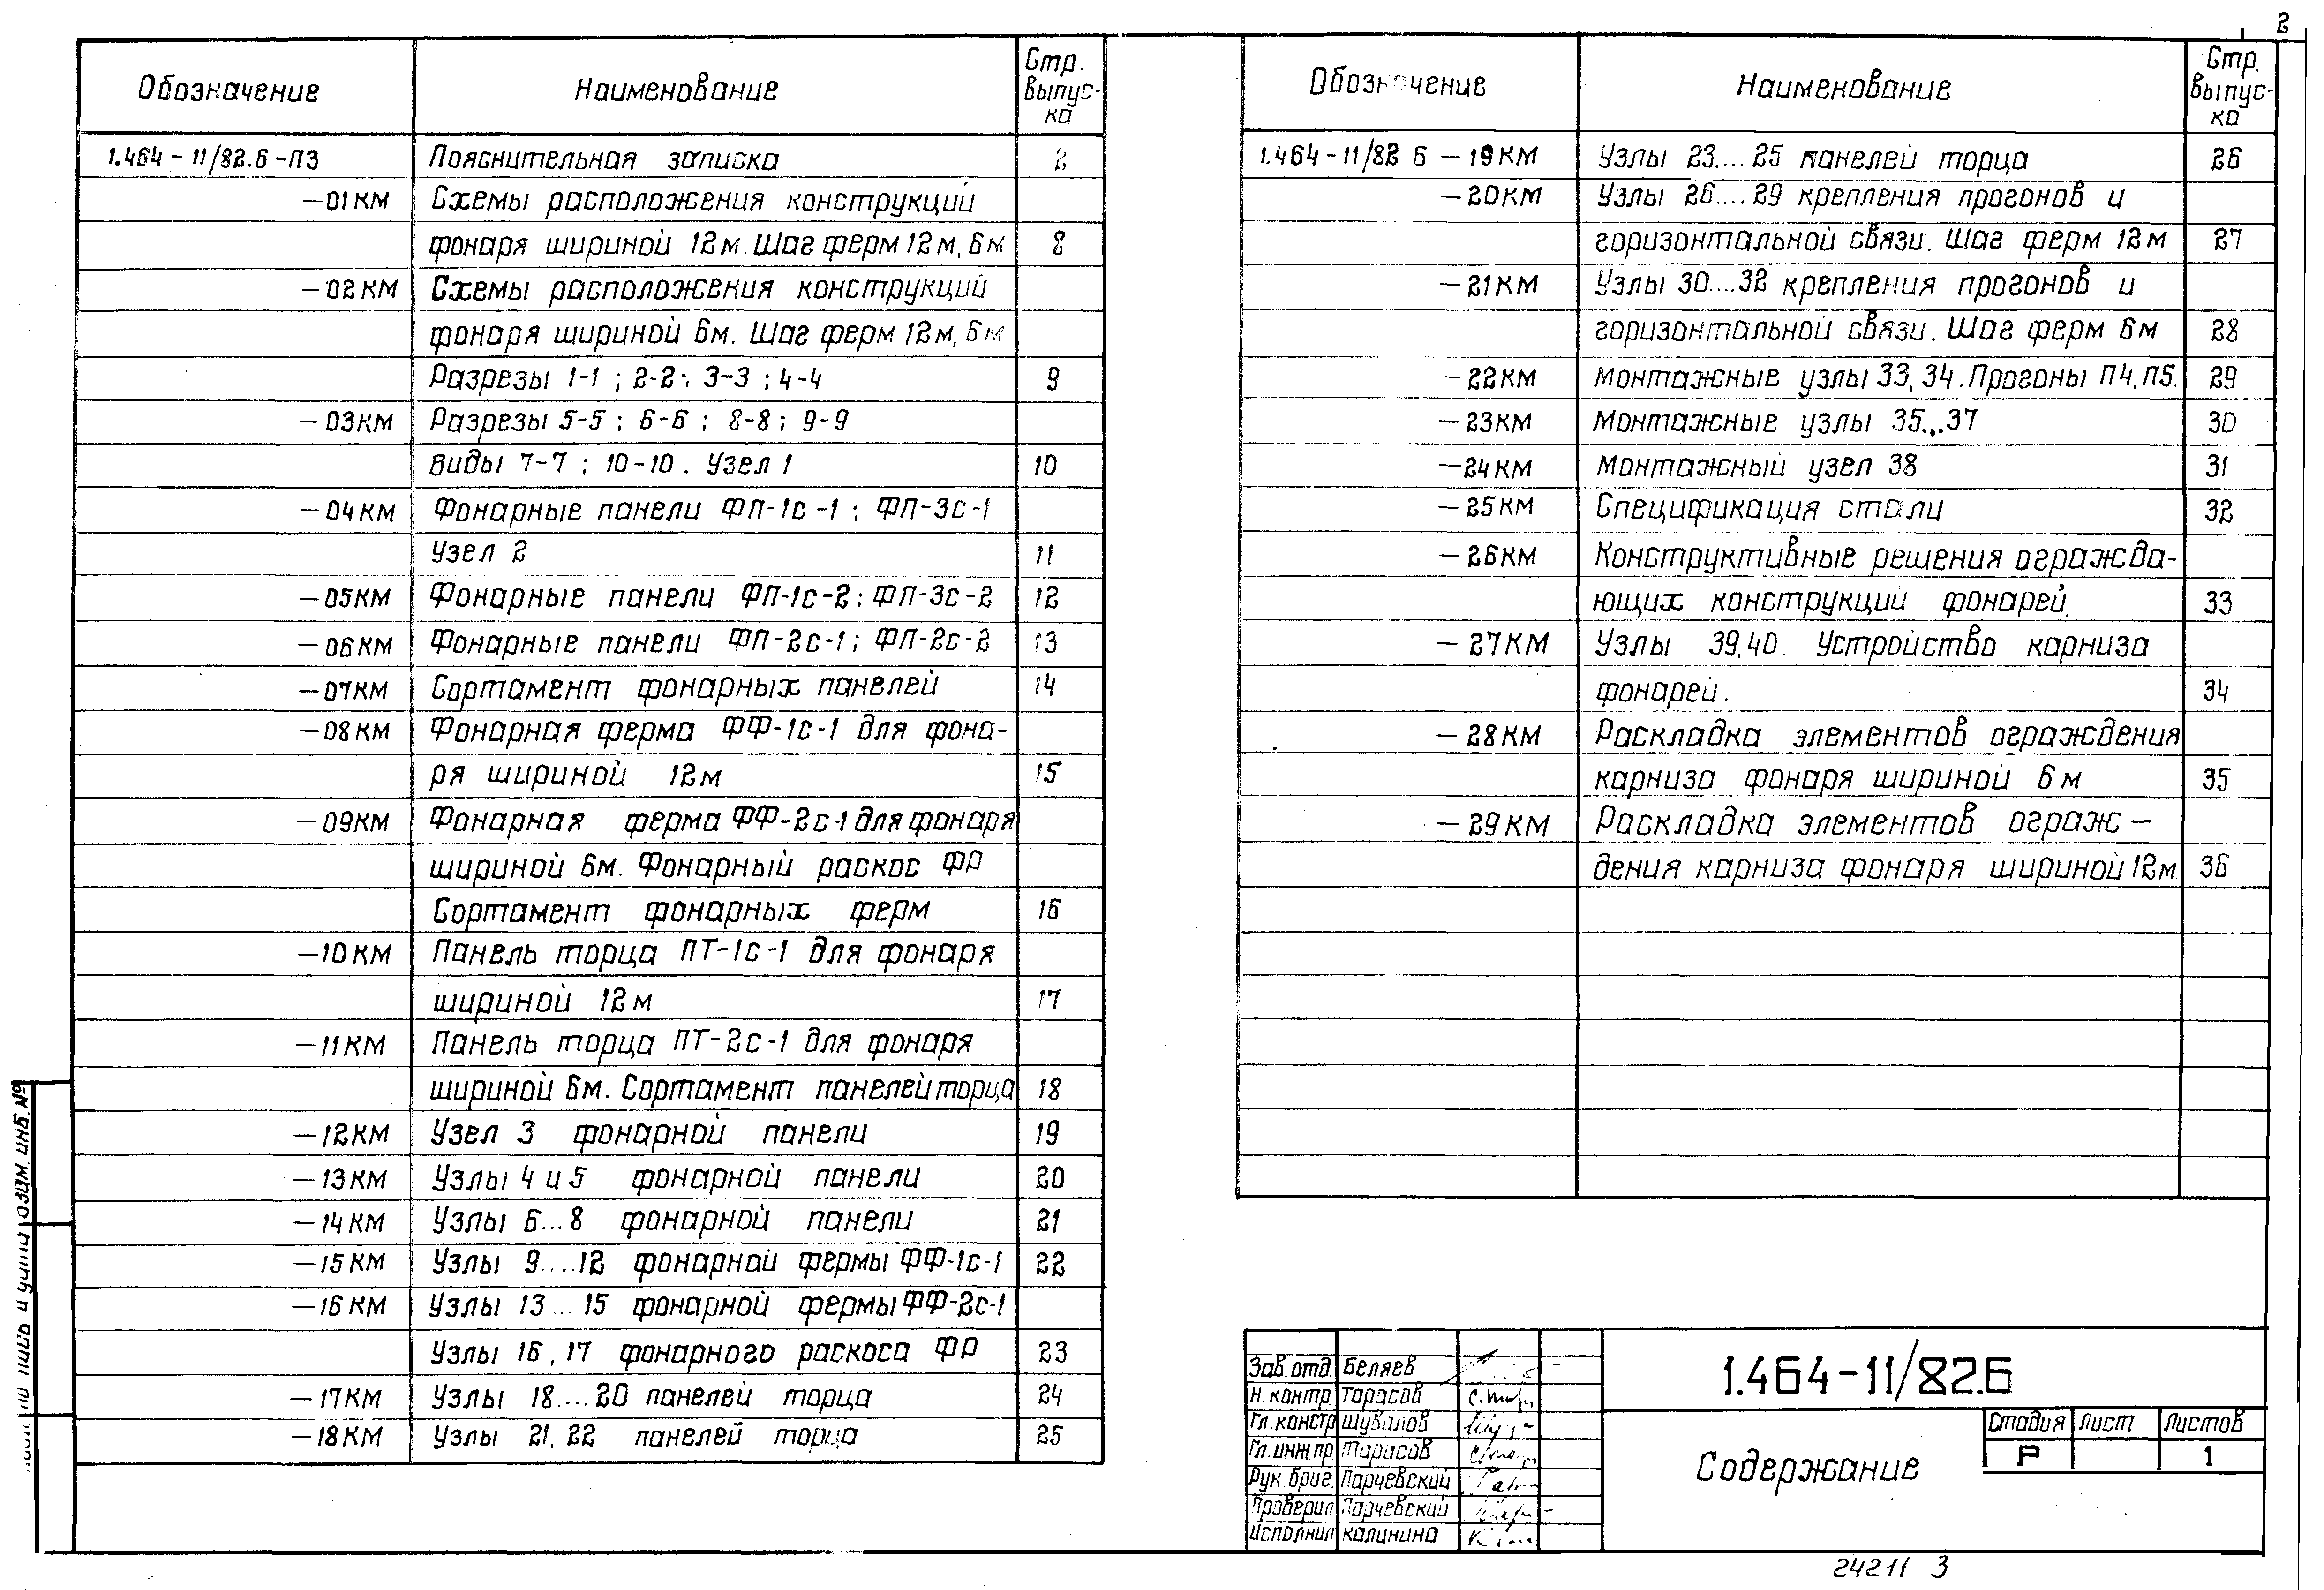 2
Обозначение Наименование Стр. выпус-ка
1.464-11/82.6-ПЗ Пояснительная записка 2
-01КМ Схемы расположения конструкций
фонаря шириной 12м. Шаг ферм 12м, 6м 8
-02КМ Схемы расположения конструкций
фонаря шириной 6м. Шаг ферм 12м, 6м
Разрезы 1-1; 2-2; 3-3; 4-4 9
-03КМ Разрезы 5-5; 6-6; 8-8; 9-9
Виды 7-7; 10-10. Узел 1 10
-04КМ Фонарные панели ФП-1с-1; ФП-3с-1
Узел 2 11
-05КМ Фонарные панели ФП-1с-2; ФП-3с-2 12
-06КМ Фонарные панели ФП-2с-1; ФП-2с-2 13
-07КМ Сортамент фонарных панелей 14
-08КМ Фонарная ферма ФФ-1с-1 для фона-
ря шириной 12м 15
-09КМ Фонарная ферма ФФ-2с-1 для фонаря
шириной 6м. Фонарный раскос ФР
Сортамент фонарных ферм 16
-10КМ Панель торца ПТ-1с-1 для фонаря
шириной 12м 17
-11КМ Панель торца ПТ-2с-1 для фонаря
шириной 6м. Сортамент панелей торца 18
-12КМ Узел 3 фонарной панели 19
-13КМ Узлы 4 и 5 фонарной панели 20
-14КМ Узлы 6...8 фонарной панели 21
-15КМ Узлы 9....12 фонарной фермы ФФ-1с-1 22
-16КМ Узлы 13...15 фонарной фермы ФФ-2с-1
Узлы 16, 17 фонарного раскоса ФР 23
-17КМ Узлы 18....20 панелей торца 24
-18КМ Узлы 21, 22 панелей торца 25
Обозначение Наименование Стр. выпус-ка
1.464-11/82 6 -19КМ Узлы 23....25 панелей торца 26
-20КМ Узлы 26....29 крепления прогонов и
горизонтальной связи. Шаг ферм 12м 27
-21КМ Узлы 30....32 крепления прогонов и
горизонтальной связи. Шаг ферм 6м 28
-22КМ Монтажные узлы 33, 34. Прогоны П4, П5. 29
-23КМ Монтажные узлы 35...37 30
-24КМ Монтажный узел 38 31
-25КМ Спецификация стали 32
-26КМ Конструктивные решения огражда-
ющих конструкций фонарей. 33
-27КМ Узлы 39,40. Устройство карниза
фонарей. 34
-28КМ Раскладка элементов ограждения
карниза фонаря шириной 6м 35
-29КМ Раскладка элементов ограж-
дения карниза фонаря шириной 12м. 36
Взам инв. №
Зав. отд. Беляев
Н. контр. Тарасов
Гл. констр Шувалов
Гл. инж.пр. Тарасов
Рук. бриг. Парчевский
Проверил Парчевский
Исполнил Калинина
1.464-11/82.6
Содержание
Стадия Лист Листов
Р 1
24211 3